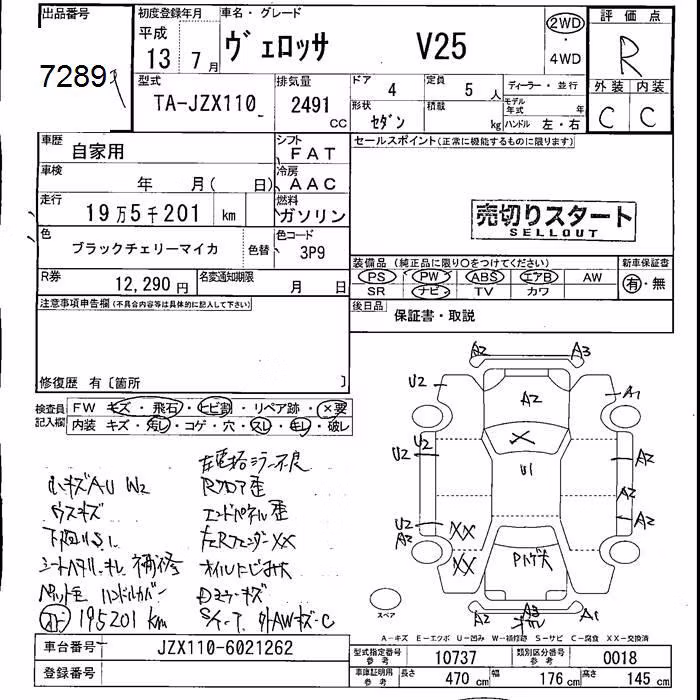 出品番号
72891
初度登録年月
平成
13年 7月
車名・グレード
ヴェロッサ V25
2WD
・
4WD
評価点
R
外装 内装
C C
型式
TA-JZX110
排気量
2491
CC
ドア 4
定員 5人
ディーラー・並行
形状 セダン
積載 kg
モデル年式 年
ハンドル 左・右
車歴
自家用
シフト
FAT
車検
年 月( 日)
冷房
AAC
走行
19万5千201 km
燃料
ガソリン
色
ブラックチェリーマイカ
色替
色コード
3P9
R券
12,290円
名変通知期限
月 日
セールスポイント(正常に機能するものに限ります)
売切りスタート
SELLOUT
装備品(純正品に限り○をつけてください)
新車保証書
PS PW ABS エアB AW
SR ナビ TV カワ
有・無
後日品
保証書・取説
注意事項申告欄(不具合内容等は具体的に記入して下さい)
修復歴 有〔箇所 〕
検査員記入欄
FW キズ・飛石・ヒビ割・リペア跡・×要
内装 キズ・汚レ・コゲ・穴・スレ・キレ・破レ
小キズA・U W2
ウスキズ
Rフロア歪
エンドパネル歪
左RフェンダーXX
シートヘタリ、キレ補修
オイルにじみ大
ハンドルカバー
195201 km
外AWキズ・C
A2 A3
U2 A2 A1
U2
U2 U1 A2
A2
U2 A2
A2 XX
XX
A2 A3 A1
スペア
A-キズ E-エクボ U-凹み W-補修跡 S-サビ C-腐食 XX-交換済
車台番号
JZX110-6021262
登録番号
型式指定番号 参考
10737
類別区分番号 参考
0018
車庫証明用 参考
長さ 470 cm
幅 176 cm
高さ 145 cm